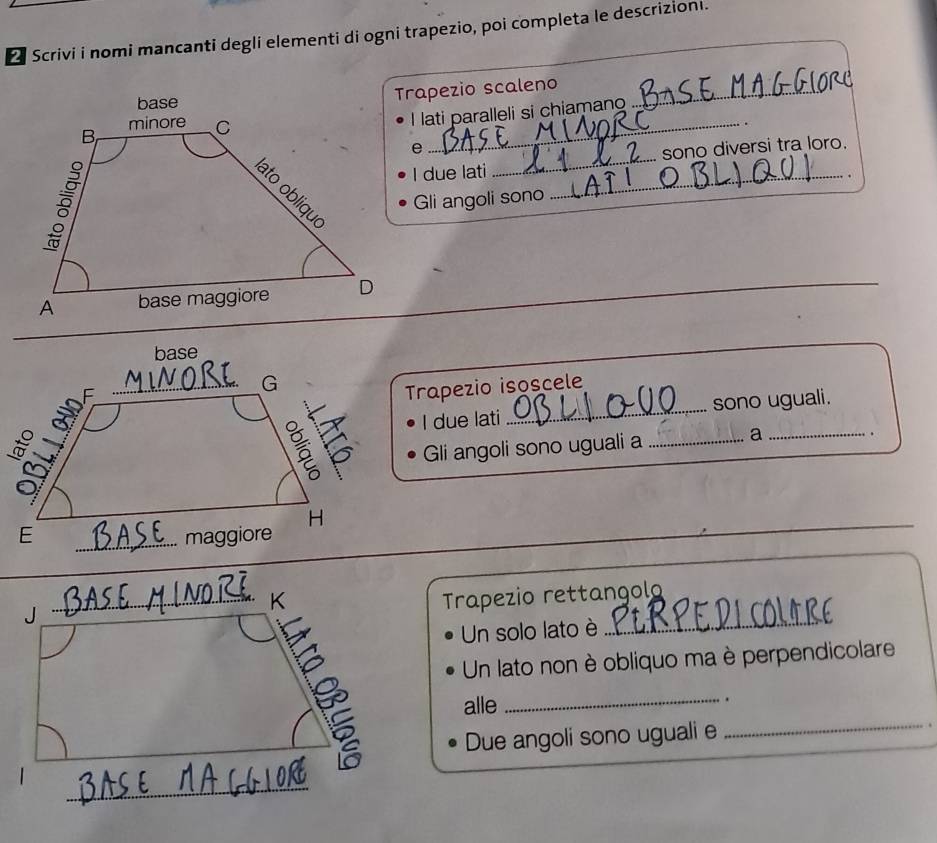 2 Scrivi i nomi mancanti degli elementi di ogni trapezio, poi completa le descrizioni.
base
minore
B
C
lato obliquo
lato obliquo
A
base maggiore
D
Trapezio scaleno
• I lati paralleli si chiamano BASE MAGGIORE
e BASE MINORE .
• I due lati l1 l2 sono diversi tra loro.
• Gli angoli sono LATI OBLIQUI .
base
MINORE
F
G
lato
OBLIQUO
LATO
obliquo
E
BASE maggiore
H
Trapezio isoscele
• I due lati OBLIQUO sono uguali.
• Gli angoli sono uguali a ____ a ____ .
J
BASE MINORE
K
LATO OBLIQUO
I
BASE MAGGIORE
Trapezio rettangolo
• Un solo lato è PERPEDICOLARE
• Un lato non è obliquo ma è perpendicolare
alle ____ .
• Due angoli sono uguali e ____ .